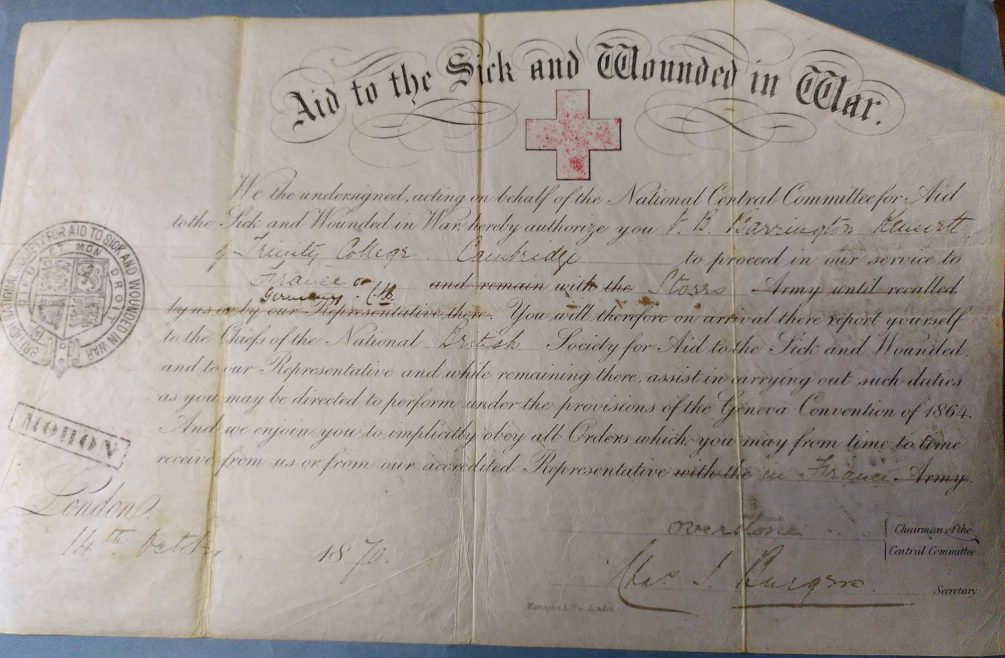 Aid to the Sick and Wounded in War.
We the undersigned, acting on behalf of the National Central Committee for Aid
to the Sick and Wounded in War, hereby authorize you F. B. Barrington Kennett
of Trinity College Cambridge to proceed in our service to
France or and remain with the Stores Army until recalled
Germany
by us or by our Representative there. You will therefore on arrival there report yourself
to the Chiefs of the National British Society for Aid to the Sick and Wounded,
and to our Representative and while remaining there, assist in carrying out such duties
as you may be directed to perform under the provisions of the Geneva Convention of 1864.
And we enjoin you to implicitly obey all Orders which you may from time to time
receive from us or from our accredited Representative with the in France Army.
BRITISH NATIONAL SOCIETY FOR AID TO SICK AND WOUNDED IN WAR
DIEU ET MON DROIT
MOHON
London,
14th October 1870.
Overstone Chairman of the
Central Committee
Secretary
Harrington & Co London